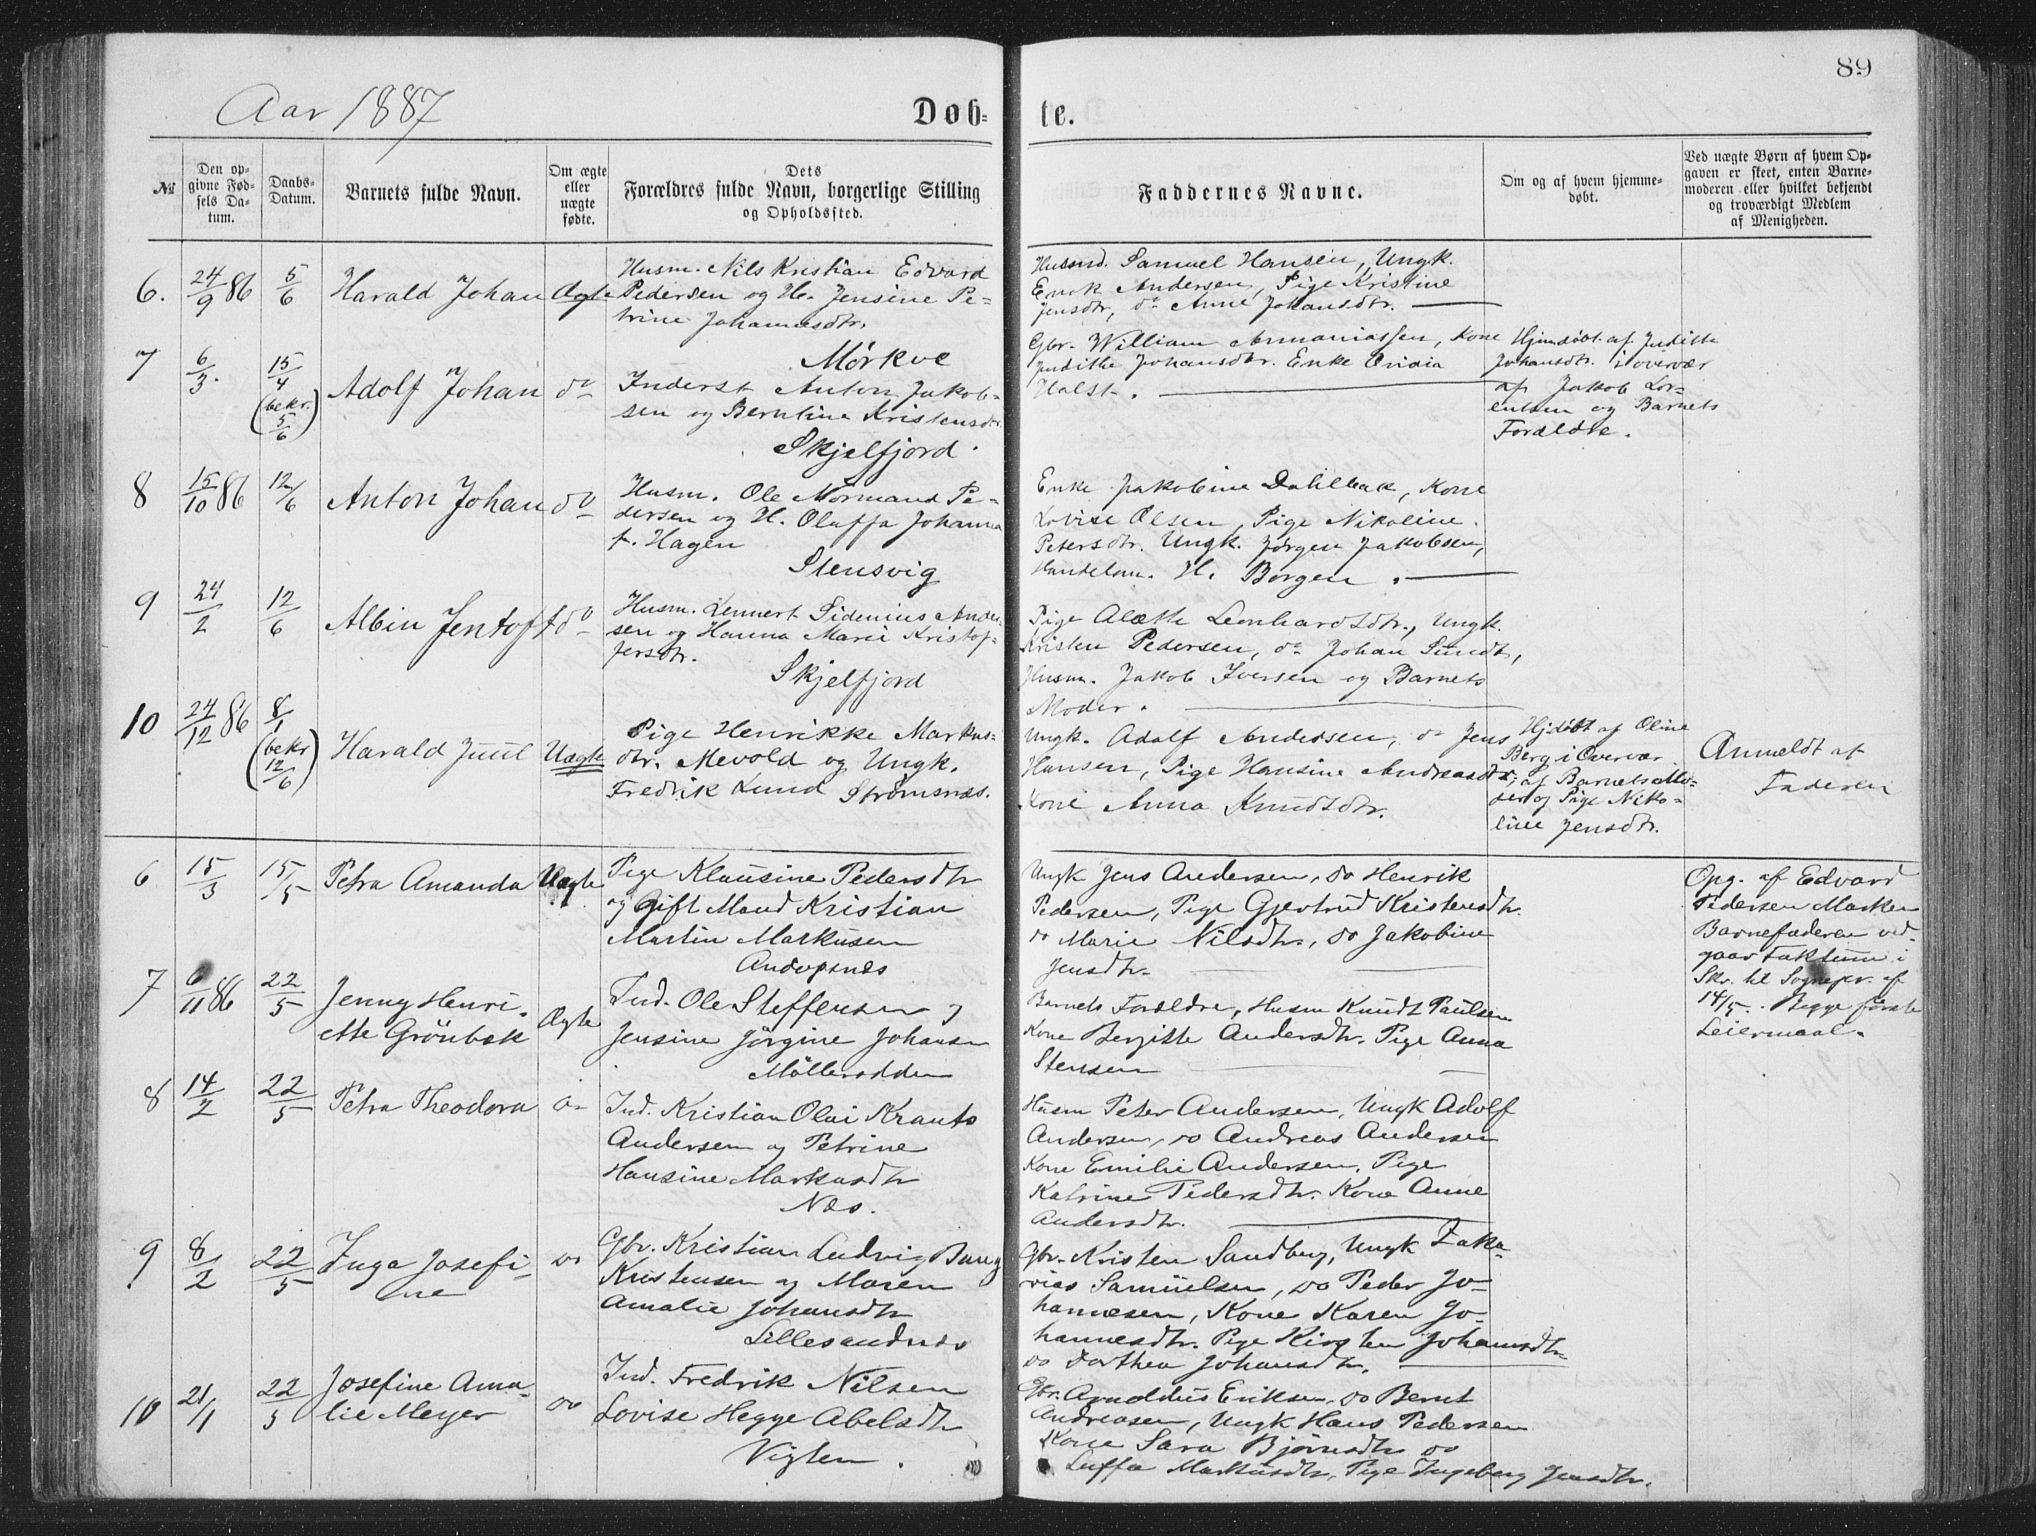 89
Aar 1887
Døb=
te.
№
Den op-
givne Fød-
sels Da-
tum.
Daabs-
Datum.
Barnets fulde Navn.
Om ægte
eller
uægte
fødte.
Dets
Forældres fulde Navn, borgerlige Stilling
og Opholdssted.
Faddernes Navne.
Om og af hvem hjemme-
døbt.
Ved uægte Børn af hvem Op-
gaven er skeet, enten Barne-
moderen eller hvilket bekjendt
og troværdigt Medlem
af Menigheden.
6. 24/9 86 5/6 Harald Johan Ægte
Husm. Nils Kristian Edvard
Pedersen og H. Jensine Pe-
trine Johannesdtr.
Mørkve
Husmd. Samuel Hansen, Ungk.
Enok Andersen, Pige Kristine
Jensdtr, do Anne Johansdtr.
7 6/3. 15/4 (bekr. 5/6) Adolf Johan do
Inderst Anton Jakob-
sen og Berntine Kristensdtr
Skjelfjord.
Gbr. William Annaniassen, Kone
Judithe Johansdtr. Enke
Holst.
Hjmdøbt. af Judithe
Johansdtr. i overvær
af Jakob Lor-
entsen og Barnets
Forældre.
8 15/10 86 12/6 Anton Johan do
Husm. Ole Normand Pe-
dersen og H. Oluffa Johanna
f. Hagen
Stensvig
Enke Jakobine Dahlbak, Kone
Lovise Olsen, Pige Nikoline
Petersdtr. Ungk. Jørgen Jakobsen,
Handelsm. H. Borgen.
9 24/2 12/6 Albin Jentoft do
Husm. Lennert Sidenius Ander-
sen og Hanna Marie Kristof-
fersdtr.
Skjelfjord
Pige Alette Leonhardsdtr., Ungk.
Kristen Pedersen, do Johan Sundt,
Husm. Jakob Iversen og Barnets
Moder.
10 24/12 86 8/1 (bekr 12/6) Harald Juul Uægte
Pige Henrikke Markus-
dtr. Mevold og Ungk.
Fredrik Lund Strømsnæs.
Ungk. Adolf Andersen, do Jens
Hansen, Pige Hansine Andreasdtr,
Kone Anna Knudsdtr.
Hjdøbt af Oline
Berg i Overvær
af Barnets Mo-
der og Pige Niko-
line Jensdtr.
Anmeldt af
Faderen
6 15/3 15/5 Petra Amanda Uægte
Pige Klausine Pedersdtr
og Gift Mand Kristian
Martin Markusen
Andopsnes
Ungk Jens Andersen, do Henrik
Pedersen, Pige Gjertrud Kristensdtr.
do Marie Nilsdtr., do Jakobine
Jensdtr.
Opg. af Edvard
Pedersen Marken
Barnefaderen ved-
gaar Faktum i
Skr. til Sognepr. af
14/5. Begge første
Leiermaal.
7 6/11 86 22/5 Jenny Henri-
ette Grönbek Ægte
Ind. Ole Steffensen og
Jensine Jörgine Johansen
Mölleradden
Barnets Forældre, Husm Knudt Paulsen
Kone Bergitte Andersdtr. Pige Anna
Stensen
8 14/2 22/5 Petra Theodora do
Ind. Kristian Olai Krantz
Andersen og Petrine
Hansine Markusdtr
Næs.
Husm Peter Andersen, Ungk Adolf
Andersen, do Andreas Andersen
Kone Emilie Andersen, Pige
Katrine Pedersdtr. Kone Anne
Andersdtr.
9 8/2 22/5 Inga Josefi-
ne do
Gbr. Kristian Ludvig Bang
Kristensen og Maren
Amalie Johansdtr
Lillesandnes
Gbr. Kristen Sandberg, Ungk Zaka-
rias Samuelsen, do Peder Jo-
hannesen, Kone Karen Jo-
hannesdtr. Pige Kirsten Johansdtr
do Dorthea Johansdtr.
10 21/1 22/5 Josefine Ama-
lie Meyer do
Ind. Fredrik Nilsen
Lovise Hegge Abelsdtr
Vigten.
Gbr. Arnoldus Eriksen, do Bernt
Andreasen, Ungk Hans Pedersen
Kone Sara Bjørnsdtr do
Luffa Markusdtr, Pige Ingeborg Jensdtr.